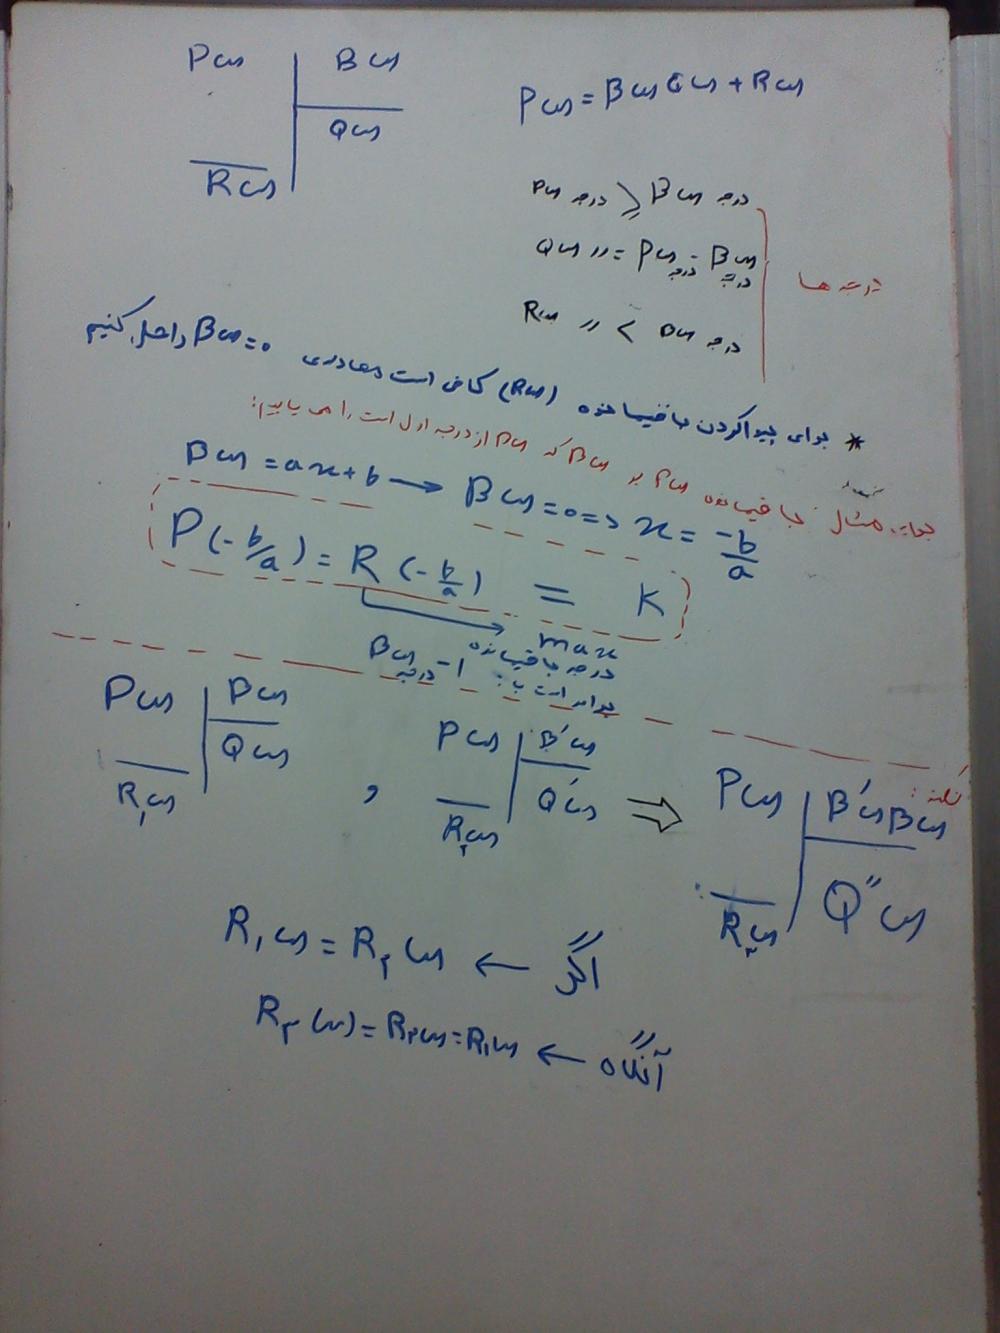 P(x) | B(x)
Q(x)
R(x)
P(x) = B(x) Q(x) + R(x)
درجه P(x) ⩾ درجه B(x)
Q(x)〃 = درجه P(x) - درجه B(x)
R(x) 〃 < درجه B(x)
درجه ها
* برای پیدا کردن باقیمانده (R(x)) کافی است معادله‌ی B(x)=0 را حل کنیم
برای مثال باقیمانده P(x) بر B(x) که از درجه اول است را می یابیم:
B(x) = ax+b → B(x)=0 => x = -b/a
P(-b/a) = R(-b/a) = K
max درجه باقیمانده
برابر است با: درجه B(x) - 1
نکته:
P(x) | B(x)
Q(x)
R₁(x)
, P(x) | B'(x)
Q'(x)
R۲(x)
⇒ P(x) | B'(x)B(x)
Q''(x)
R۳(x)
اگر ← R₁(x) = R۲(x)
آنگاه ← R۳(x) = R۲(x) = R₁(x)